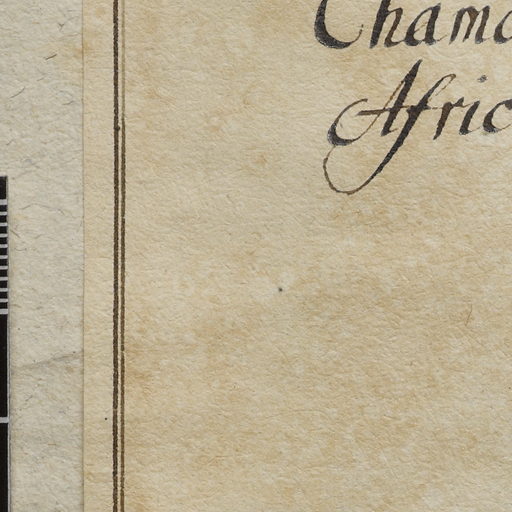 Chama
Afric